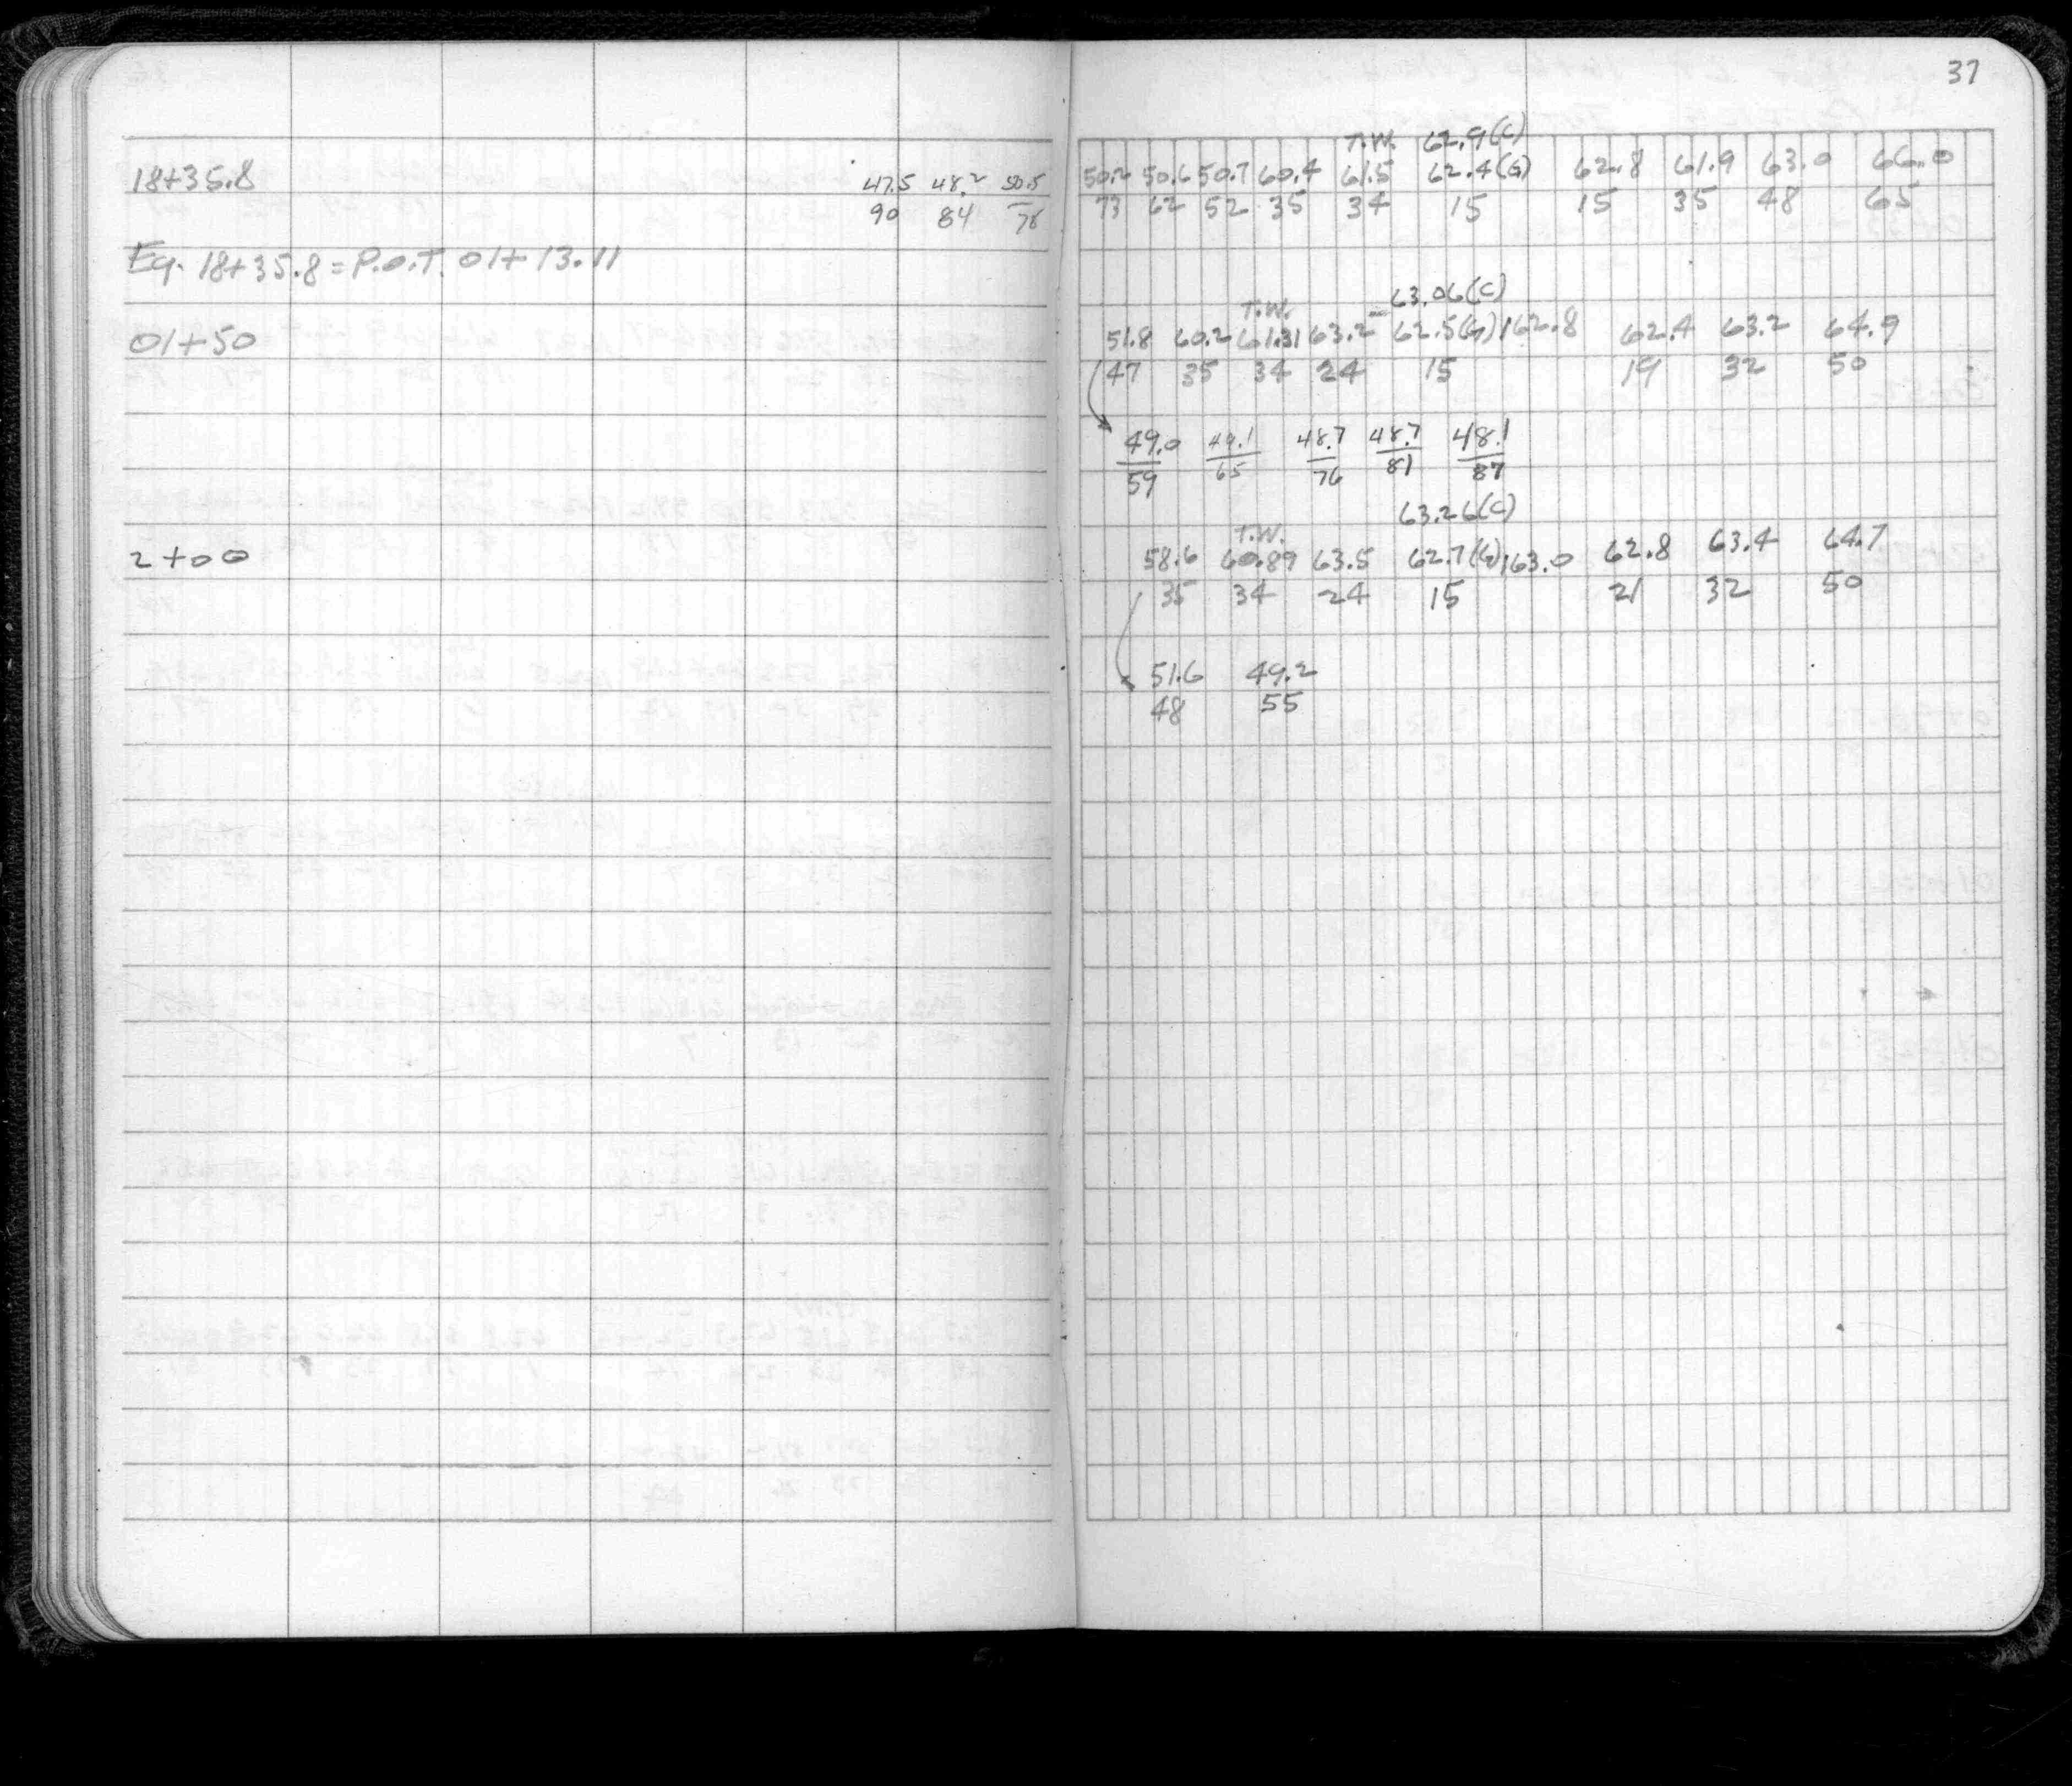 37
T.W. 62.9(C)
18+35.8 47.5 48.2 50.5 50.2 50.6 50.7 60.4 61.5 62.4(G) 62.8 61.9 63.0 66.0
90 84 78 73 62 52 35 34 15 15 35 48 65
Eq. 18+35.8 = P.O.T. 01+13.11
T.W. 63.06(C)
01+50 51.8 60.2 61.31 63.2 62.5(G) 162.8 62.4 63.2 64.9
47 35 34 24 15 19 32 50
49.0 49.1 48.7 48.7 48.1
59 65 76 81 87
63.26(C)
T.W.
2+00 58.6 60.89 63.5 62.7(G) 163.0 62.8 63.4 64.7
35 34 24 15 21 32 50
51.6 49.2
48 55